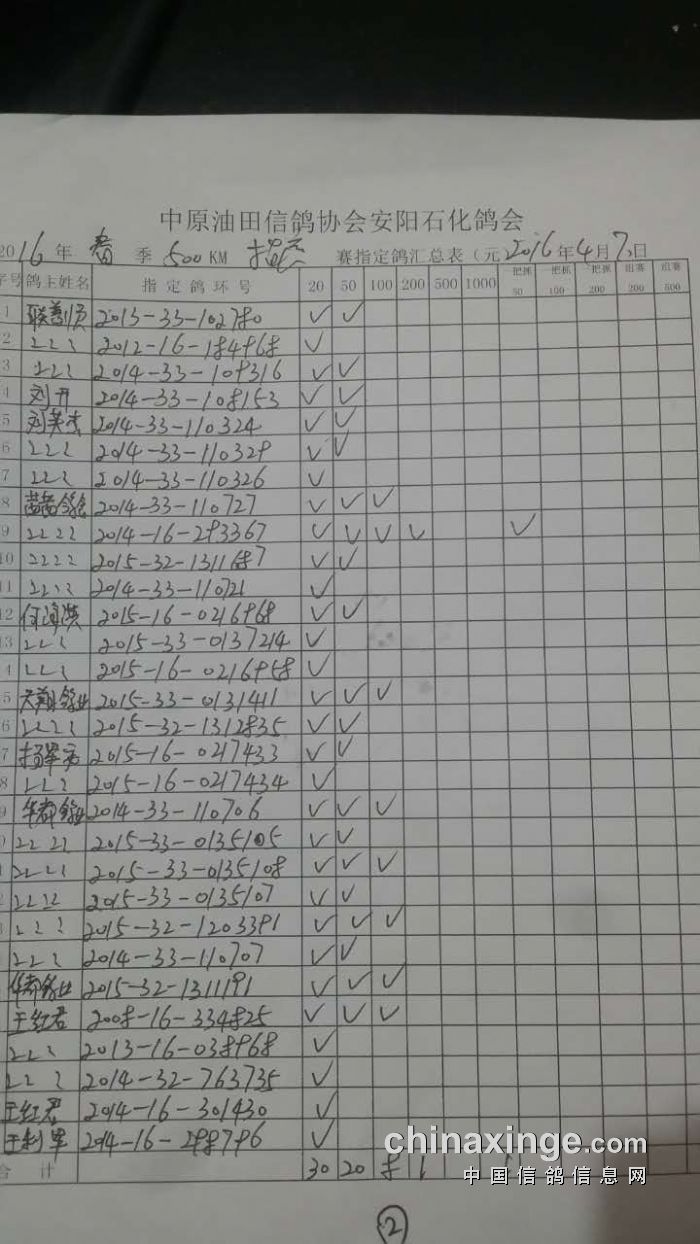 中原油田信鸽协会安阳石化鸽会
2016年 春 季 500KM 指定 赛指定鸽汇总表（元 2016年4月7日
序号 鸽主姓名 指定鸽环号 20 50 100 200 500 1000 一把抓50 一把抓100 一把抓200 组赛200 组赛500
1 2013-33-102780 ✓ ✓
2 〃 2012-16-184968 ✓
3 〃 2014-33-109316 ✓ ✓
4 刘开 2014-33-108153 ✓ ✓
5 刘英杰 2014-33-110324 ✓ ✓
6 〃 2014-33-110329 ✓ ✓
7 〃 2014-33-110326 ✓
8 2014-33-110727 ✓ ✓ ✓
9 〃 2014-16-293367 ✓ ✓ ✓ ✓ ✓
10 〃 2015-32-1311687 ✓ ✓
11 〃 2014-33-110721 ✓
12 2015-16-0216968 ✓ ✓
13 〃 2015-33-0137214 ✓
4 〃 2015-16-0216958 ✓
5 天翔鸽业 2015-33-0131411 ✓ ✓ ✓
6 〃 2015-32-1312835 ✓ ✓
7 2015-16-0217433 ✓ ✓
8 〃 2015-16-0217434 ✓
9 华都鸽业 2014-33-110706 ✓ ✓ ✓
〃 2015-33-0135105 ✓ ✓
〃 2015-33-0135108 ✓ ✓ ✓
〃 2015-33-0135107 ✓ ✓
〃 2015-32-1203391 ✓ ✓ ✓
〃 2014-33-110707 ✓ ✓
华都鸽业 2015-32-1311191 ✓ ✓ ✓
王红君 2008-16-334825 ✓ ✓ ✓
〃 2013-16-038968 ✓
〃 2014-32-763735 ✓
王红君 2014-16-301430 ✓
王利军 2014-16-298796 ✓
合计 30 20 8 1 1
chinaxinge.com
中国信鸽信息网
②